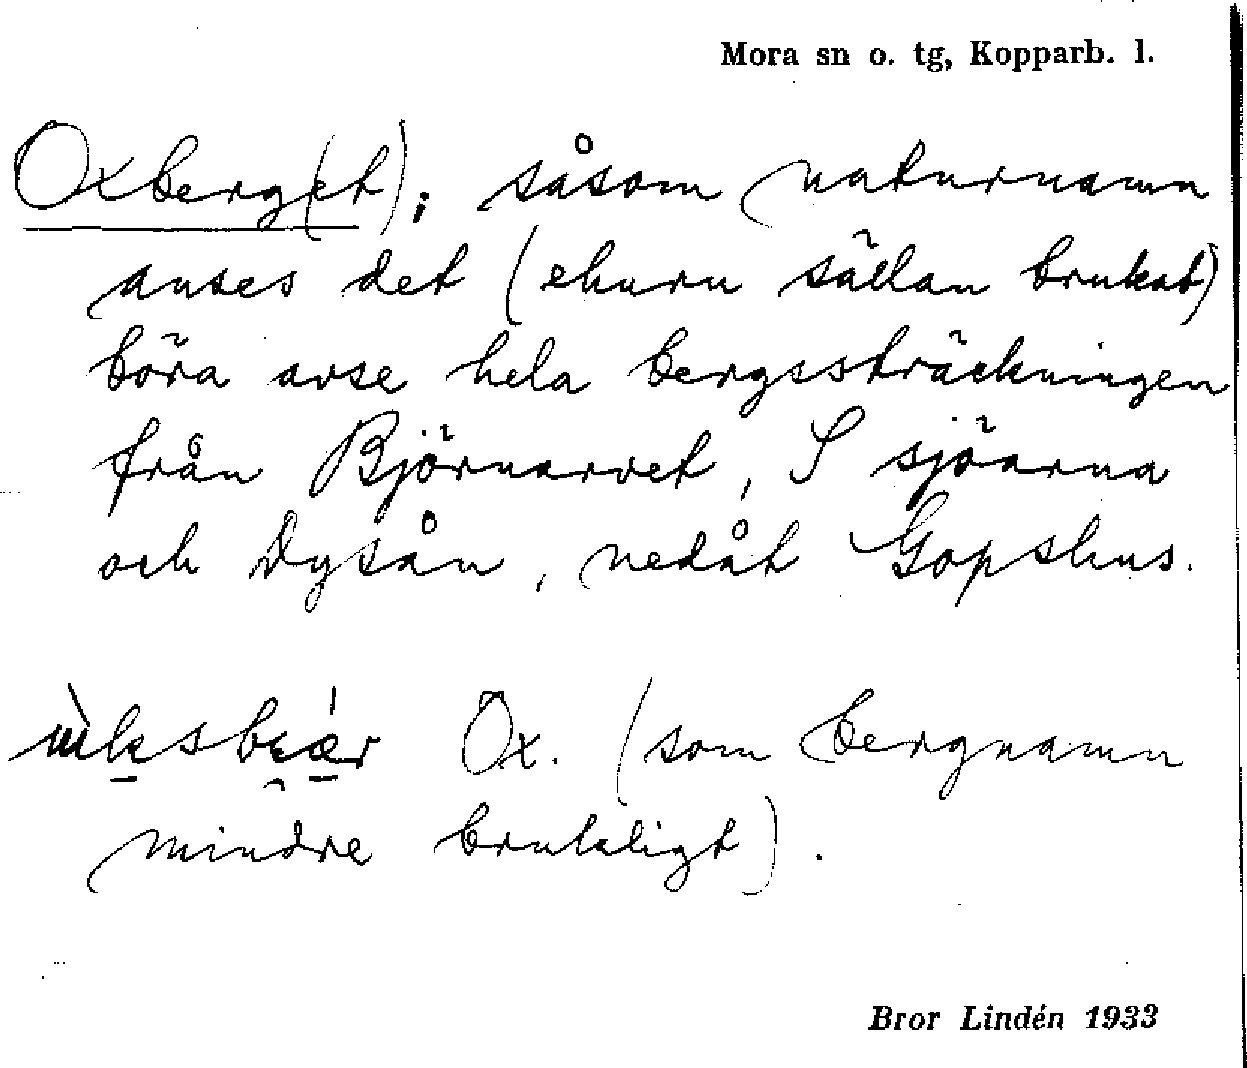 Mora sn o. tg, Kopparb. l.
Oxberg(et); såsom naturnamn
anses det (ehuru sällan brukat)
böra avse hela bergssträckningen
från Björnarvet, S sjöarna
och Dysån, nedåt Gopshus.
Ox. (som bergnamn
mindre brukligt).
Bror Lindén 1933